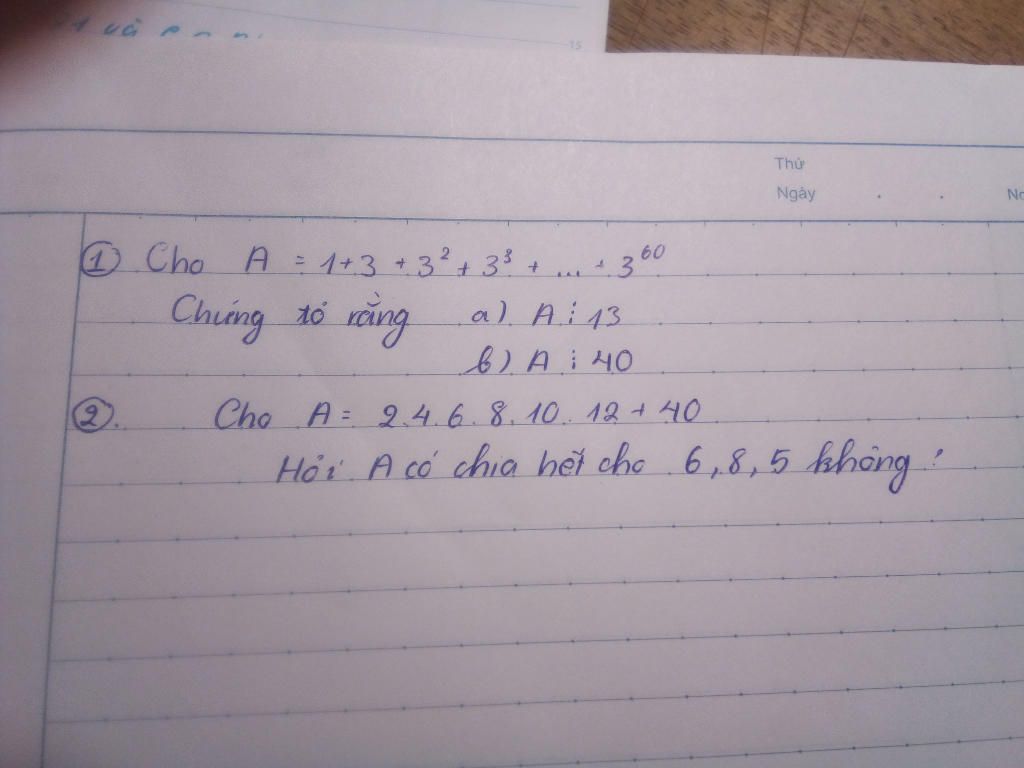 21 và
15
Thứ
Ngày . .
① Cho A = 1+3 + 3² + 3³ + ... + 3⁶⁰
Chứng tỏ rằng a) A ⋮ 13
b) A ⋮ 40
②. Cho A = 2.4.6.8.10.12 + 40
Hỏi A có chia hết cho 6, 8, 5 không?